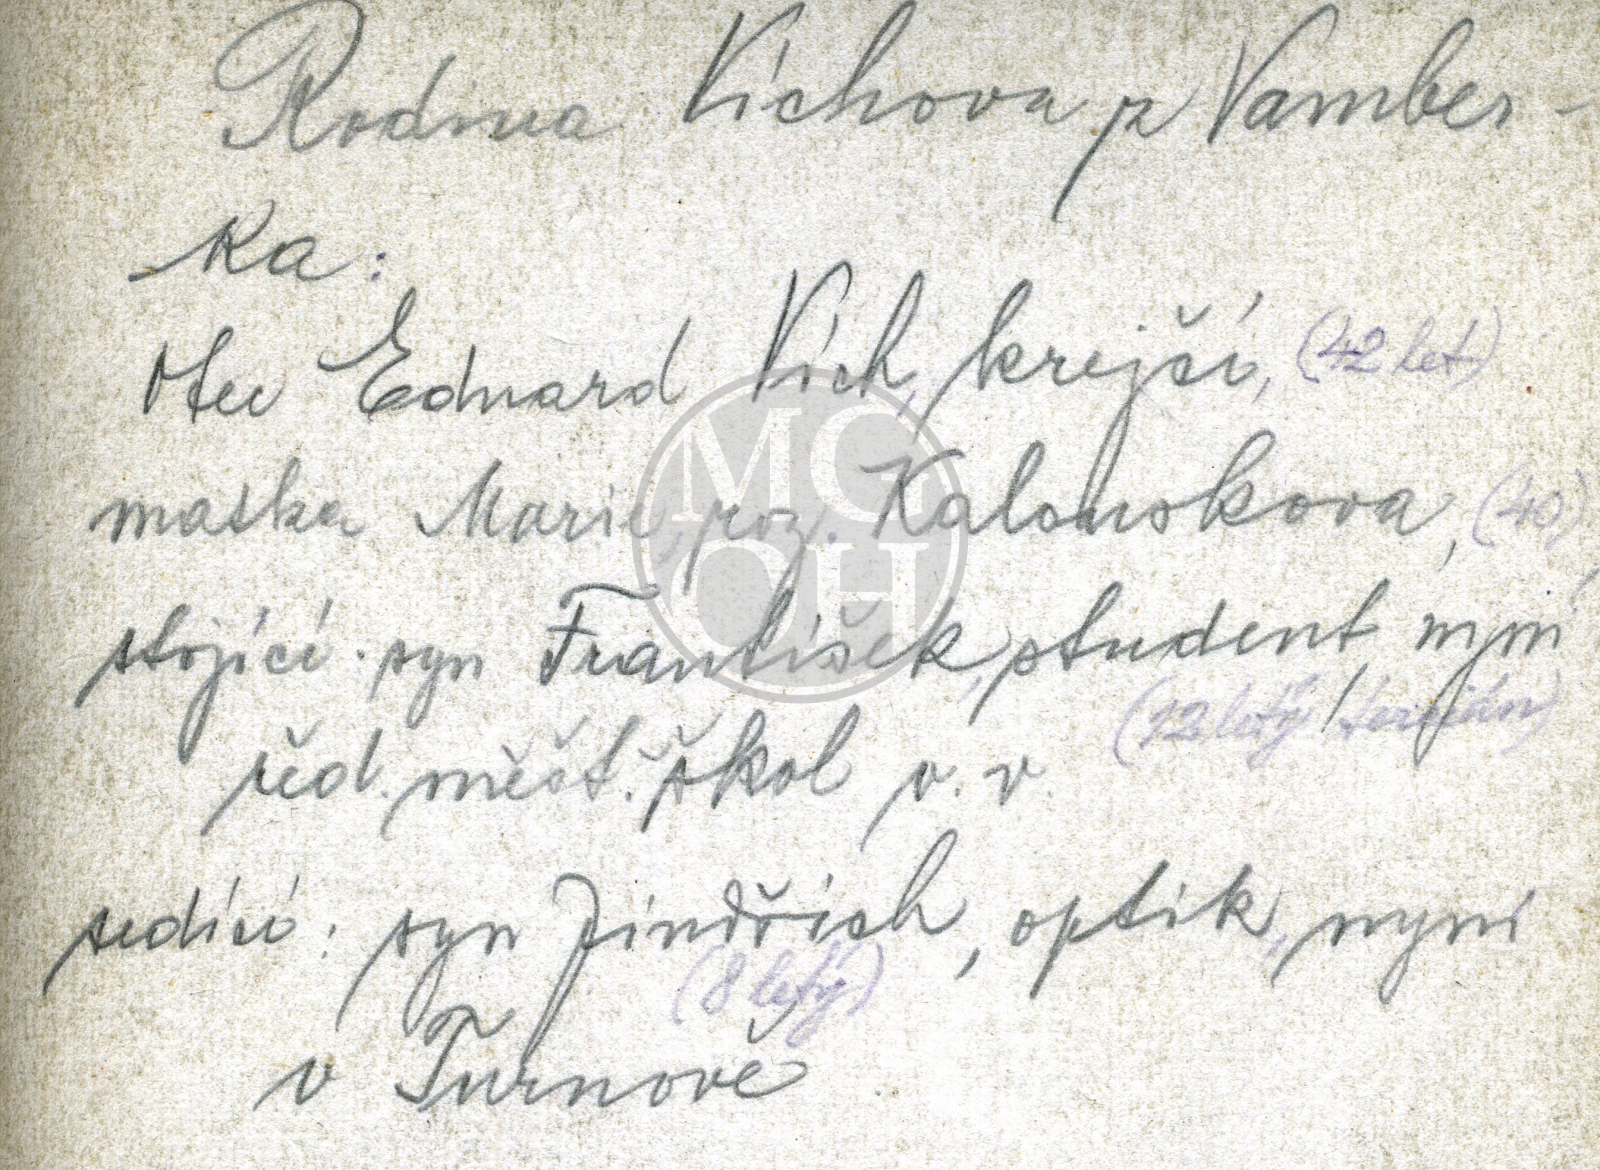 Rodina Víchova z Vamber-
ka:
otec Eduard Vích, krejčí, (42 let)
matka Marie, roz. Kalousková, (40)
stojící syn František, student, nyní
(12letý tercián)
řed. měšť. škol v. v.
sedící: syn Jindřich, optik, nyní
(8 letý)
v Turnově
MG
OH